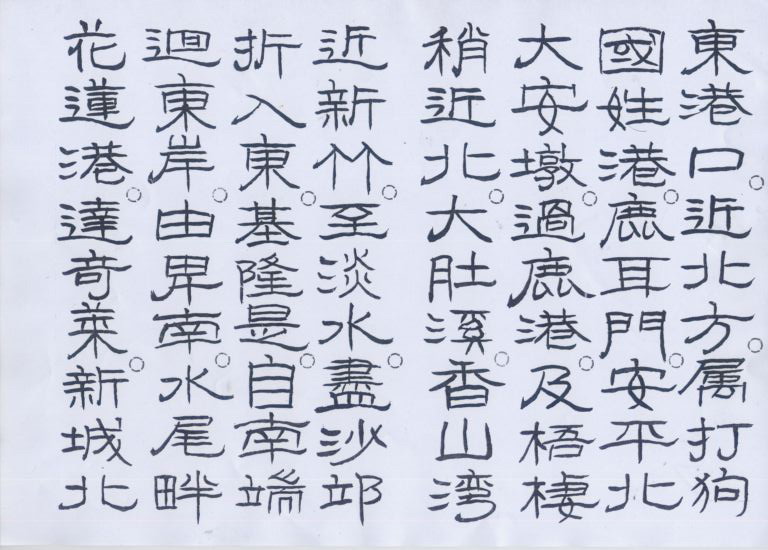 東港口。近北方。属打狗
國姓港。鹿耳門。安平北
大安墩。過鹿港。及梧棲
稍近北。大肚溪。香山湾
近新竹至淡水。盡沙邱
折入東。基隆是。自南端
迴東岸。由卑南。水尾畔
花蓮港。達奇萊。新城北